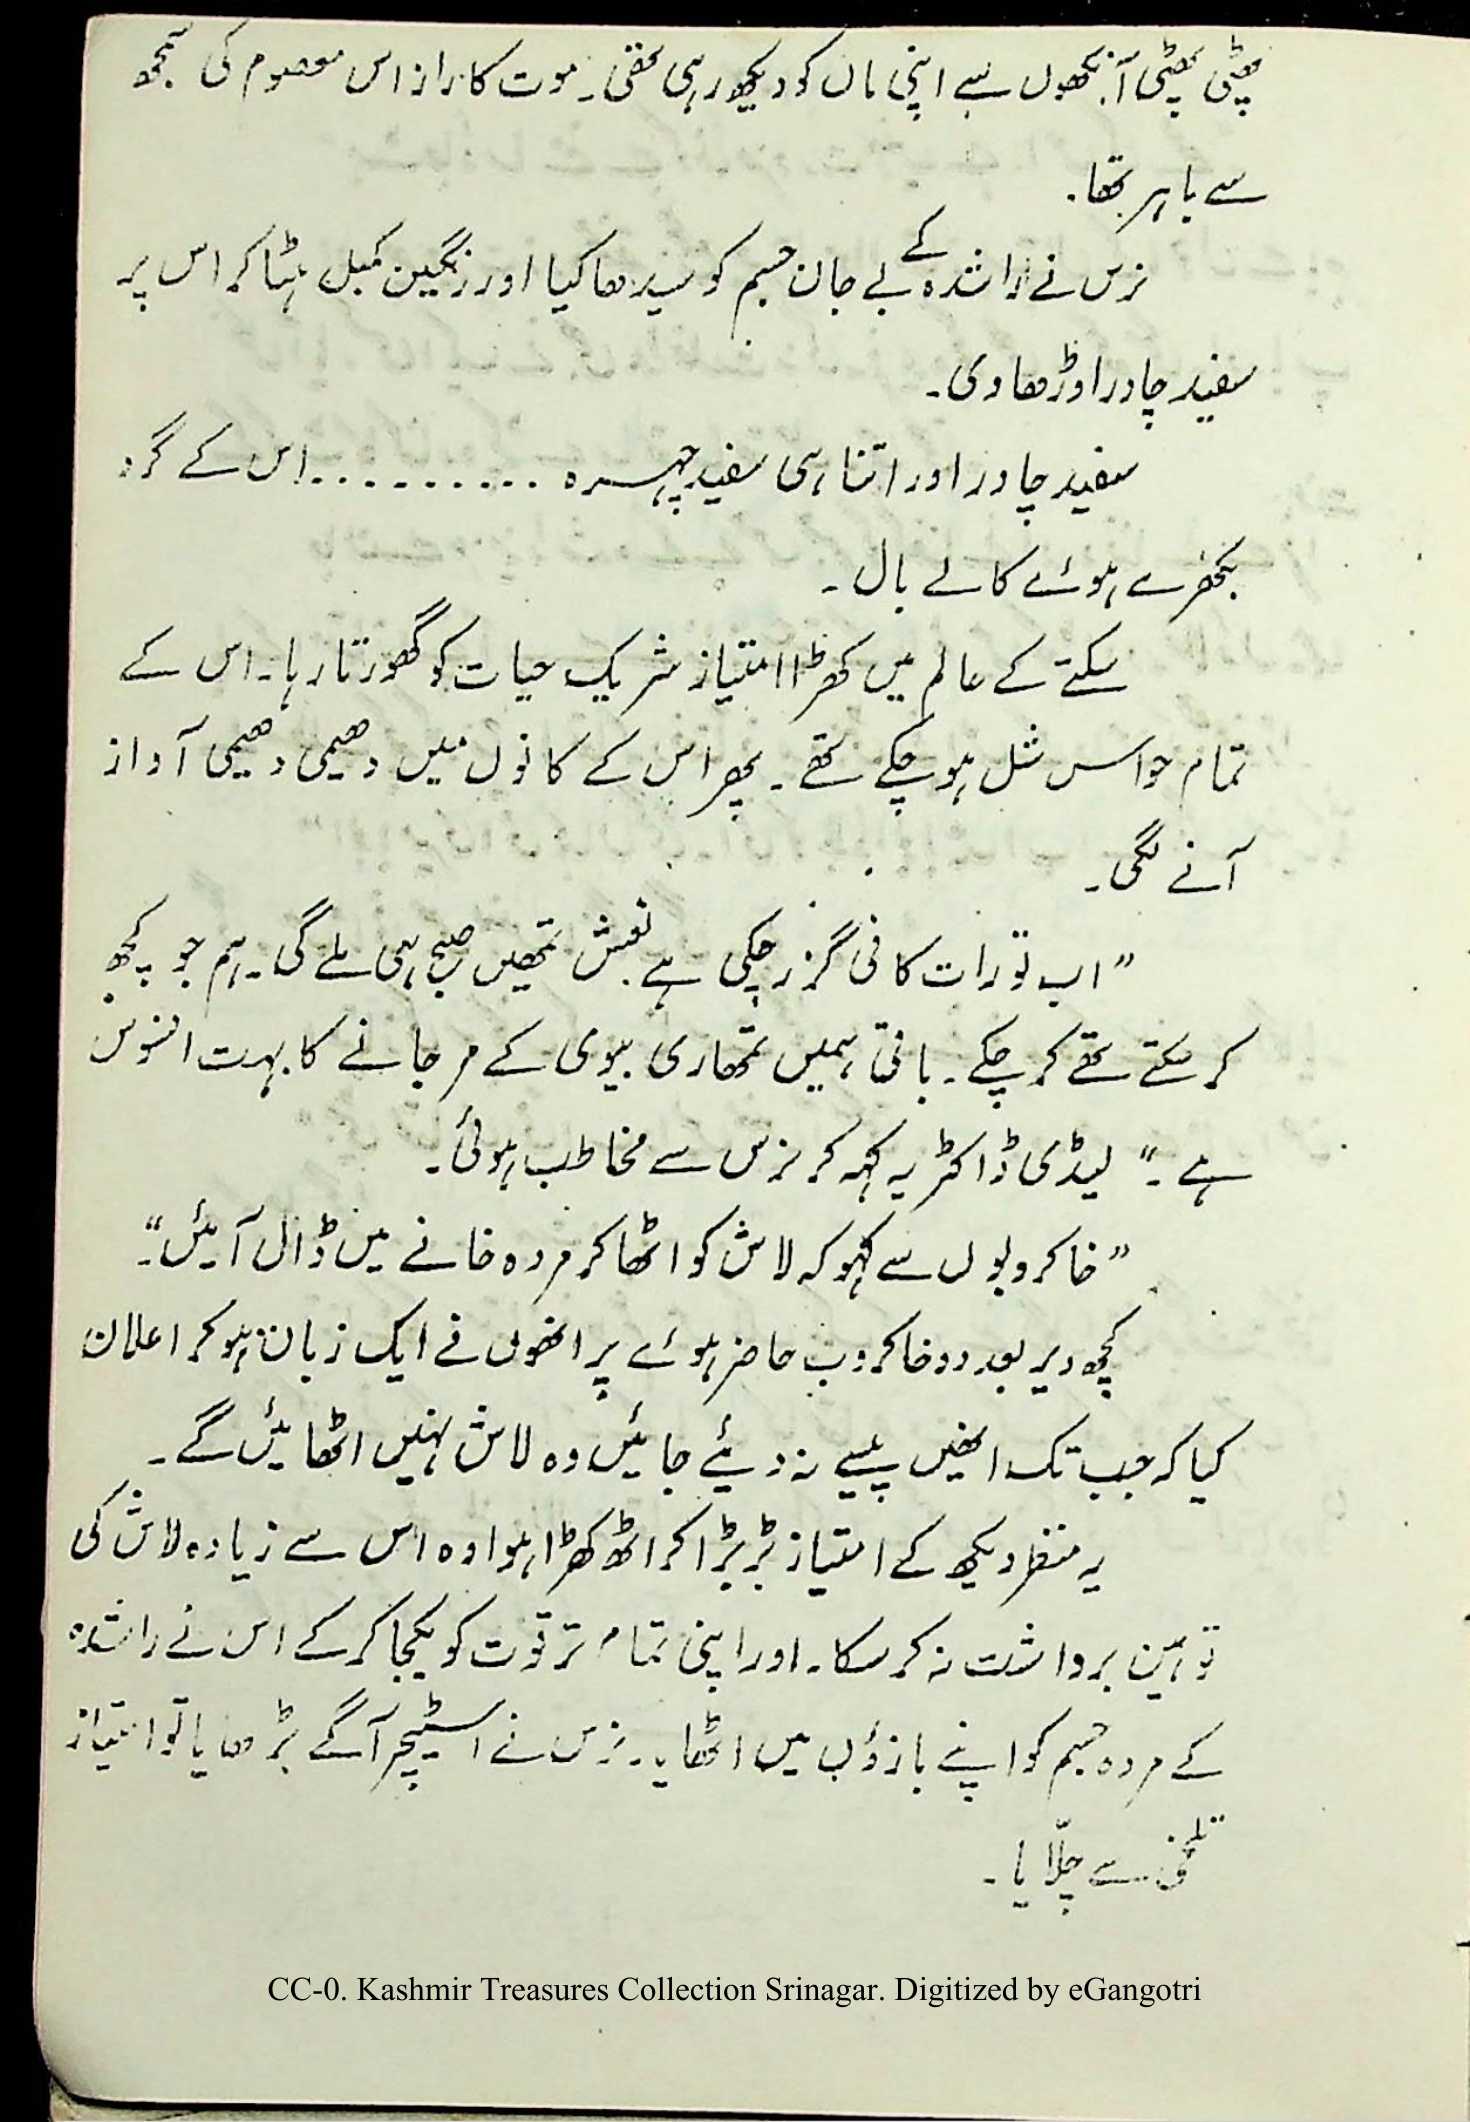 پھٹی پھٹی آنکھوں سے اپنی ماں کو دیکھ رہی تھی۔ موت کا راز اس معصوم کی سمجھ
سے باہر تھا۔
نرس نے راشدہ کے بے جان جسم کو سیدھا کیا اور رنگین کمبل ہٹا کر اس پر
سفید چادر اوڑھا دی۔
سفید چادر اور اتنا ہی سفید چہرہ .......... اس کے گرد
بکھرے ہوئے کالے بال۔
سکتے کے عالم میں کھڑا امتیاز شریک حیات کو گھورتا رہا۔ اس کے
تمام حواس شل ہو چکے تھے۔ پھر اس کے کانوں میں دھیمی دھیمی آواز
آنے لگی۔
"اب تو رات کافی گزر چکی ہے۔ نعش تمھیں صبح ہی ملے گی۔ ہم جو کچھ
کر سکتے تھے کر چکے۔ باقی ہمیں تمھاری بیوی کے مر جانے کا بہت افسوس
ہے۔" لیڈی ڈاکٹر یہ کہہ کر نرس سے مخاطب ہوئی۔
"خاکروبوں سے کہو کہ لاش کو اٹھا کر مردہ خانے میں ڈال آئیں"۔
کچھ دیر بعد دو خاکروب حاضر ہوئے پر انھوں نے ایک زبان ہو کر اعلان
کیا کہ جب تک انھیں پیسے نہ دیئے جائیں وہ لاش نہیں اٹھائیں گے۔
یہ منظر دیکھ کے امتیاز ہڑبڑا کر اٹھ کھڑا ہوا وہ اس سے زیادہ لاش کی
توہین برداشت نہ کر سکا۔ اور اپنی تمام تر قوت کو یکجا کر کے اس نے راشدہ
کے مردہ جسم کو اپنے بازوؤں میں اٹھایا۔ نرس نے اسٹیچر آگے بڑھایا تو امتیاز
تلخی سے چلّایا۔
CC-0. Kashmir Treasures Collection Srinagar. Digitized by eGangotri